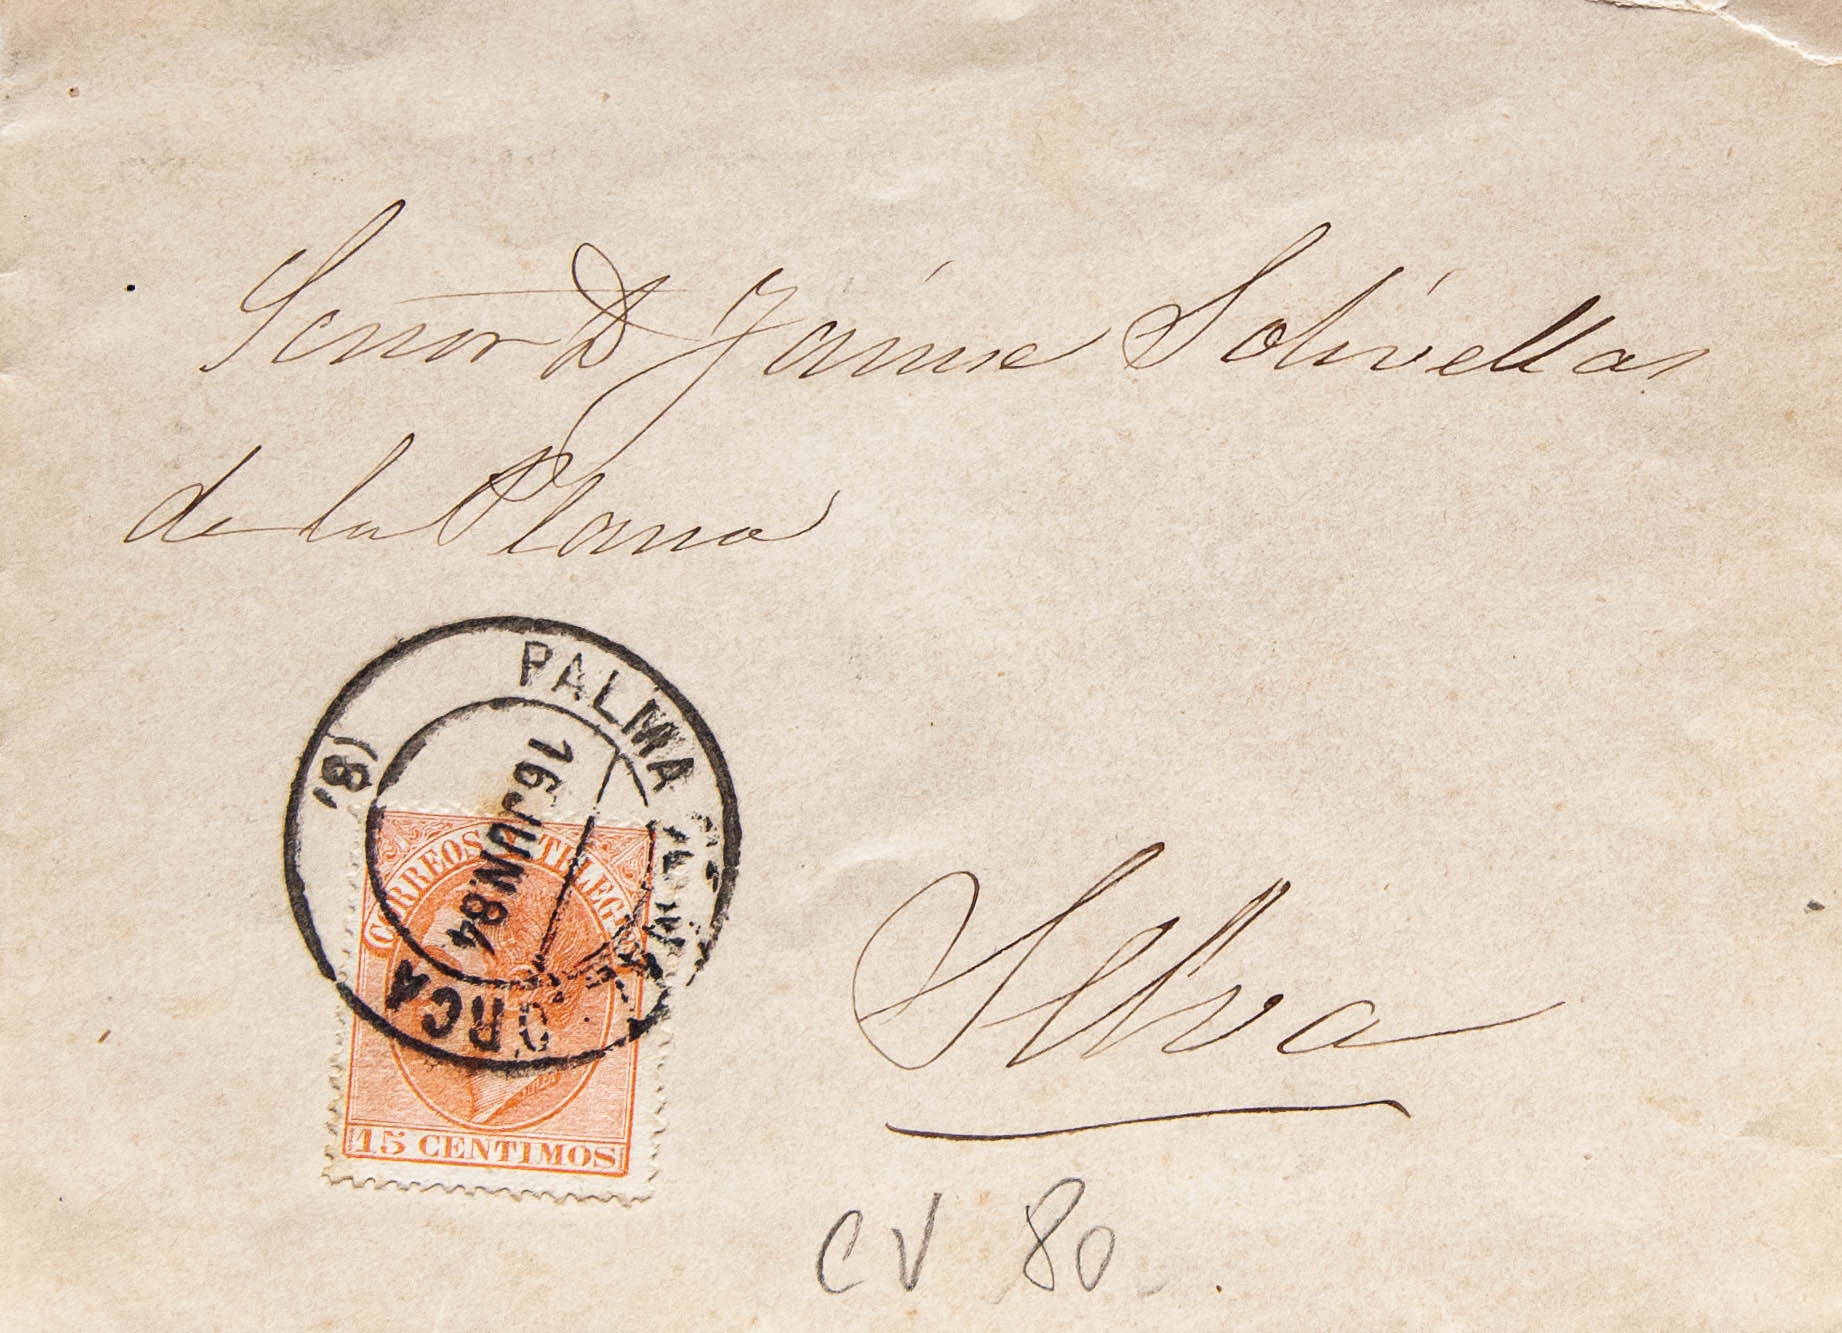 Señor D Jaime Solivellas
de la Plana
PALMA
(8)
16 JUN.84
ORCA
CORREOS Y TELEGFOS
15 CENTIMOS
Selva
CV 80